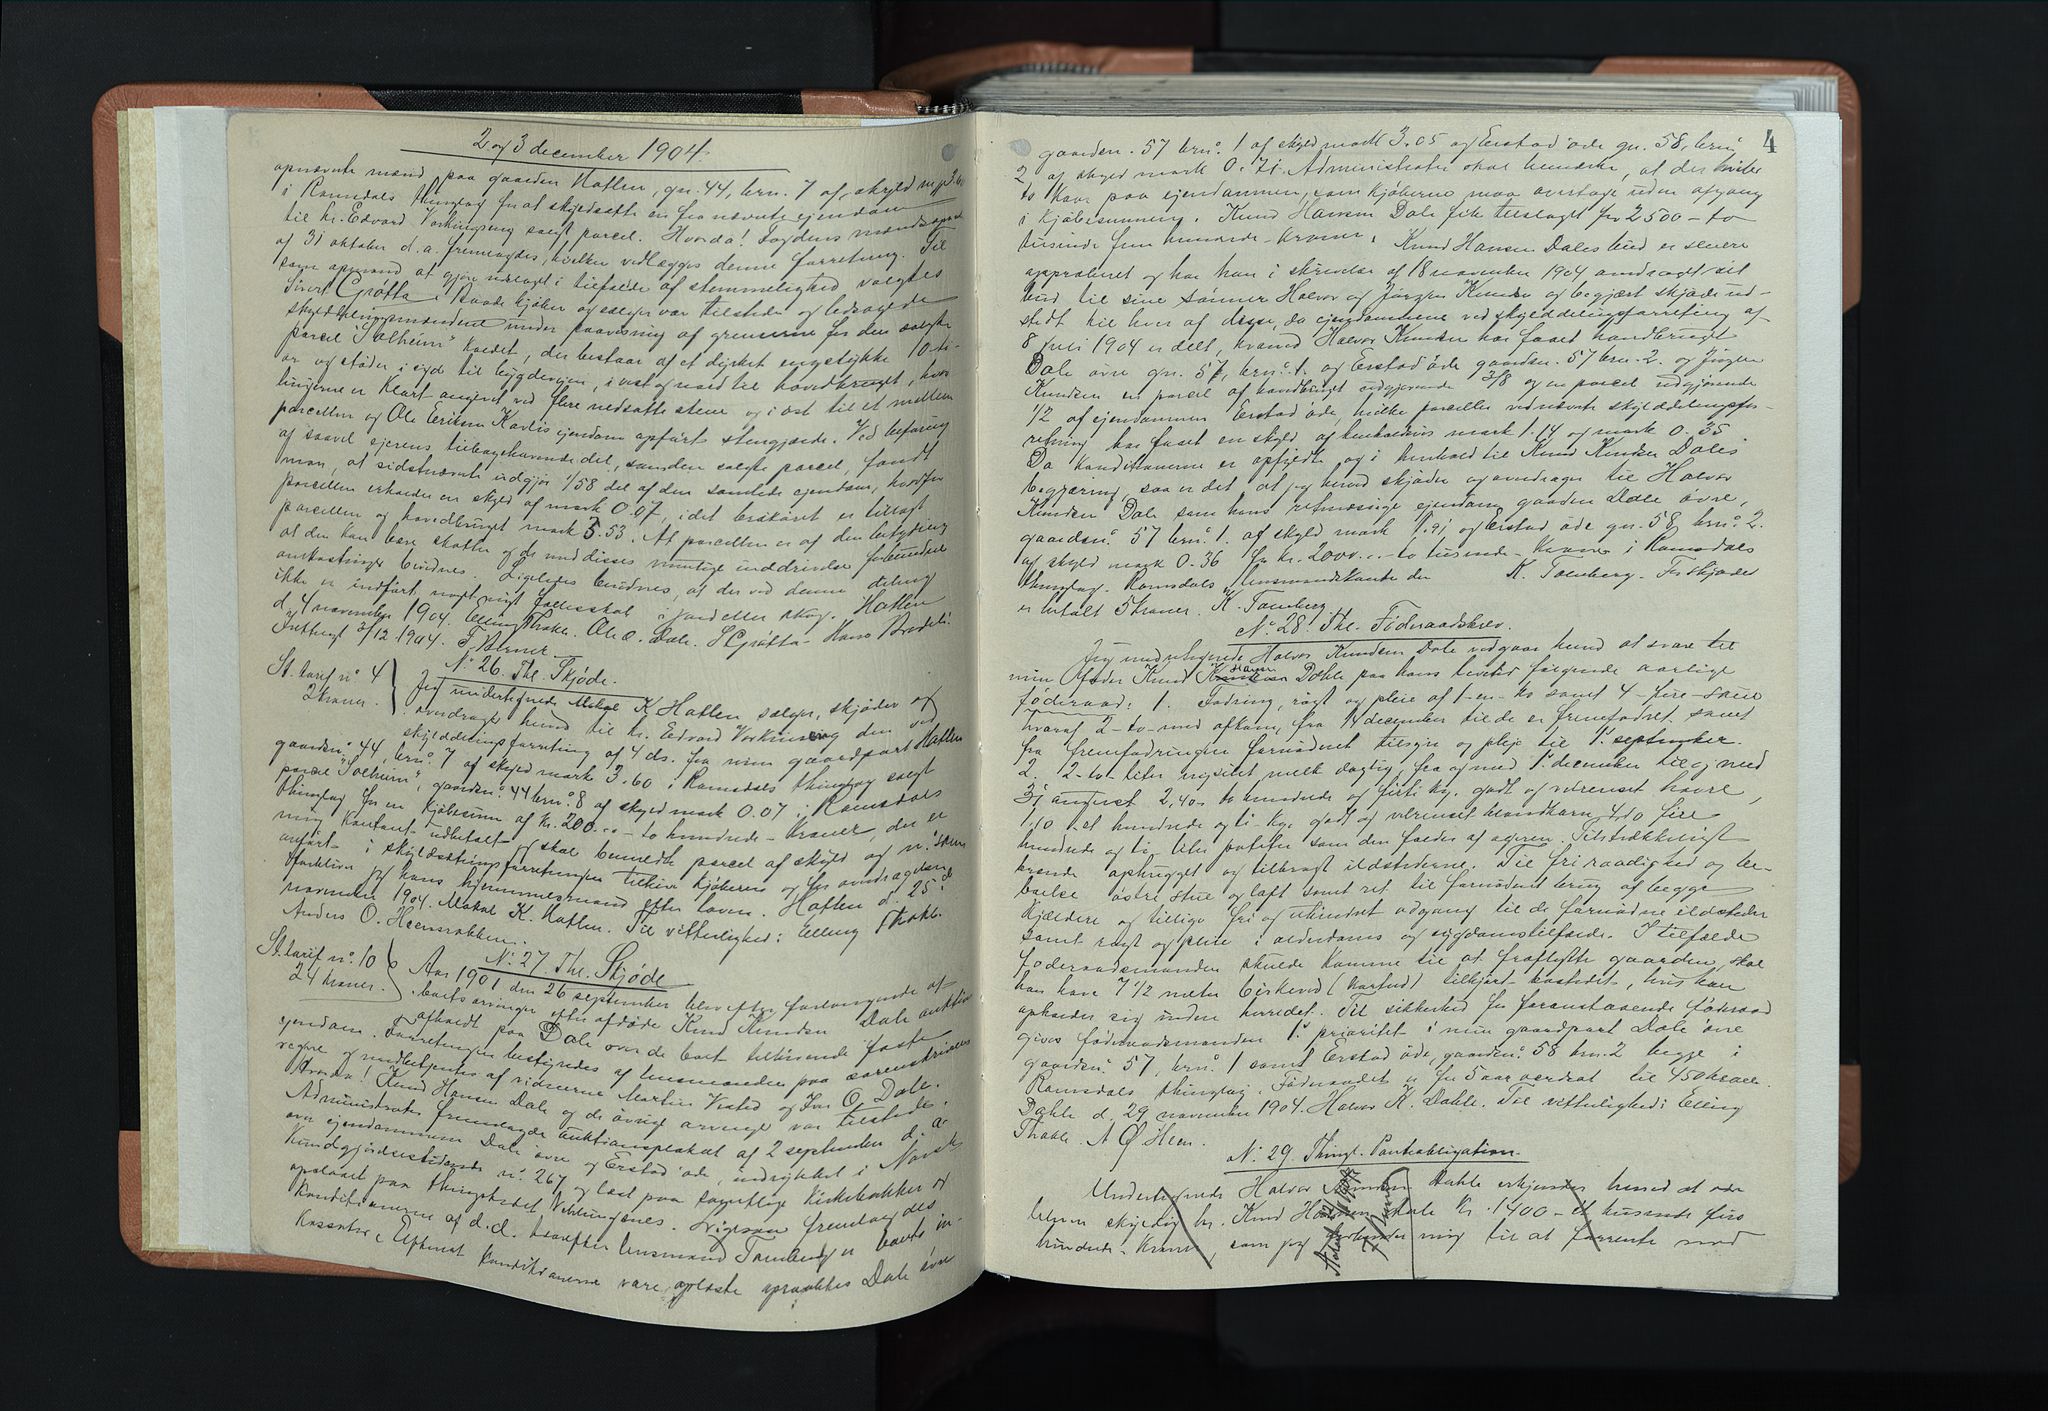 2 og 3 december 1904.
opnævnte mænd paa gaarden Hatlen, gn. 44, brn. 7 af skyld m
i Romsdals thinglag for at skyldsætte en fra nævnte ejendom
til hr. Edvard Vorkinseng solgt parcel. Hvorda! Fogdens mænds
af 31 oktober d.a. fremlagdes, hvilken vedlægges denne forretning. Til
som opmand at gjøre udslaget i tilfælde af stemmelighed valgtes
Sivert Grøtta. Baade kjøber og sælger var tilstede og ledsagede
skylddelingsmændene under paavisning af grænserne for den solgte
parcel "Solheim" kaldet, der bestaar af et dyrket engstykke 10-ti-
ar og støder i syd til bygdeveien, i vest og nord til hovedbruget, hvor
linjerne er klart angivet ved flere nedsatte stene og i øst til et mellem
parcellen og Ole Eriksen Kavlis ejendom opført stengjærde. Ved befaring
af saavel ejerens tilbagehavende del, som den solgte parcel, fandt
man, at sidstnævnte udgjør 1/58 del af den samlede ejendom, hvorfor
parcellen erholder en skyld af mark 0.07, idet brøkøret er tillagt
parcellen og hovedbruget mark 3.53. At parcellen er af den betydning
at den kan bære skatter og de med disses mulige inddrivelse forbundne
omkostninger bevidnes. Ligeledes bevidnes, at der ved denne deling
ikke er indført noget nyt fællesskab i jord eller skog. Hatlen
d. 4 november 1904. Elling Thokle. Ole O. Dale. S Grøtta. Hans
Indbragt 3/12 1904. F. Werner
St. tarif nº 4
2 kroner.
Nº 26. Thl. Skjøde.
Jeg undertegnede Mekal K Hatlen sælger, skjøder og
overdrager herved til hr. Edvard Vorkinseng den ved
skylddelingsforretning af 4 ds. fra min gaardpart Hatlen
gaardsnº 44, brnº 7 af skyld mark 3.60 i Romsdals thinglag solgt
parcel "Solheim", gaardsnº 44 brnº 8 af skyld mark 0.07 i Romsdals
thinglag for en kjøbesum af kr. 200.. – to hundrede – kroner, der er
mig kontant udbetalt og skal bemeldte parcel af skyld og nº som
anført i skyldsætningsforretningen tilhøre kjøberen og for overdragelsen
forbliver jeg hans hjemmelsmand efter loven. Hatlen d. 25de
november 1904. Mekal K. Hatlen. Til vitterlighed: Elling Thokle.
Anders O.
St. tarif nº 10
24 kroner.
Nº 27 Thl. Skjøde
Aar 1901 den 26 september blev efter forlangende af
boets arvinger efter afdøde Knud Knudsen Dale auktion
afholdt paa Dale over de boet tilhørende faste
ejendom. Forretningen bestyredes af lensmanden paa sorenskriverens
vegne og medbetjentes af vidnerne Martin Vested og Iver O. Dale.
Hvorda! Knud Hansen Dale og de øvrige arvinge var tilstede.
Administrator fremlagde auktionsplakat af 2 september d.a.
over ejendommene Dale øvre og Erstad øde, indrykket i Norsk
Kundgjørelsestidende nº 267 og læst paa samtlige kirkebakker og
opslaaet paa thingstedet Veblungsnes. Ligesaa fremlagdes
konditionerne af d.d. hvorefter lensmand Tornberg er boets in-
kassator. Efterat konditionerne vare oplæste opraabtes Dale øvre
4
gaardsn. 57 brnº 1 af skyld mark 3.05 og Erstad øde gn. 58, brnº
2 af skyld mark 0.71. Administrator skal bemærke, at der hviler
to kaar paa ejendommen, som kjøberne maa overtage uden afgang
i kjøbesummen. Knud Hansen Dale fik tilslaget for 2500 – to
tusinde fem hundrede – kroner. Knud Hansen Dales bud er senere
approberet og har han i skrivelse af 18 november 1904 andraget sit
bud til sine sønner Halvor og Jørgen Knudsen og begjært skjøde ud-
stedt til hver af disse, da ejendommene ved skylddelingsforretning af
8 juli 1904 er delt, hvoraf Halvor Knudsen har faaet hovedbruget
Dale øvre gn. 57, brnº 1. og Erstad øde gaardsn. 57 brn. 2. og Jørgen
Knudsen en parcel af hovedbruget udgjørende 3/8 og en parcel udgjørende
1/2 af ejendommen Erstad øde, hvilke parceller ved nævnte skylddelingsfor-
retning har faaet en skyld af henholdsvis mark 1.14 og mark 0.35
Da konditionerne er opfyldte og i henhold til Knud Knudsen Dales
begjæring, saa er det at jeg herved skjøder og overdrager til Halvor
Knudsen Dale som hans retmæssige ejendom gaarden Dale øvre,
gaardsnº 57 brnº 1. af skyld mark 1.91 og Erstad øde gn. 58, brnº 2.
af skyld mark 0.36 for kr. 2000... – to tusinde – kroner i Romsdals
thinglag. Romsdals lensmandskontor den K. Tornberg. For skjødet
er betalt 5 kroner. K. Tornberg.
Nº 28. Thl. Føderaadsbrev.
Jeg undertegnede Halvor Knudsen Dale vedgaar herved at svare til
min fader Knud Hansen Dahle paa hans levetid følgende aarlige
føderaad: 1. Fodring, røgt og pleie af 1 – en – ko samt 4 – fire – sauer
hvoraf 2 – to – med afkom, fra 14 december til de er fremfødret samt
fra fremfodringen fornødent tilsyn og pleje til 1. september.
2. 2 – to – liter nysilet melk daglig fra og med 1. december til og med
31 august. 2,40 – to hundrede og firti kg. godt og velrenset havre,
1,10 – et hundrede og ti – kg. godt og velrenset blandkorn 4,10 fire
hundrede og ti liter poteter som den falder af ageren. Tilstrækkeligt
brænde ophugget og tilbragt ildstederne. Til fri raadighed og be-
boelse østre stue og loft samt ret til fornøden brug af begge
kjældere og tillige fri og uhindret adgang til de fornødne ildsteder
samt røgt og pleie i alderdoms og sygdomstilfælde. I tilfælde
føderaadsmanden skulde komme til at fraflytte gaarden, skal
han have 7 1/2 meter birkeved (karfavn) tilkjørt bostedet, hvis han
opholder sig inden herredet. Til sikkerhed for foranstaaende føderaad
gives føderaadsmanden 1. prioritet i min gaardpart Dale øvre
gaardsnº 57, brnº 1 samt Erstad øde, gaardsnº 58 brn. 2 begge i
Romsdals thinglag. Føderaadet er for 5 aar værdsat til 450 kroner.
Dahle d. 29 november 1904. Halvor K. Dahle. Til vitterlighed: Elling
Thokle. A Ø Heen.
Nº 29. Thingl. Pantobligation.
Undertegnede Halvor Knudsen Dahle erkjender herved at være
bleven skyldig hr. Knud Hansen Dale kr. 1400 – et tusinde fire
hundrede – kroner, som jeg forbinder mig til at forrente med